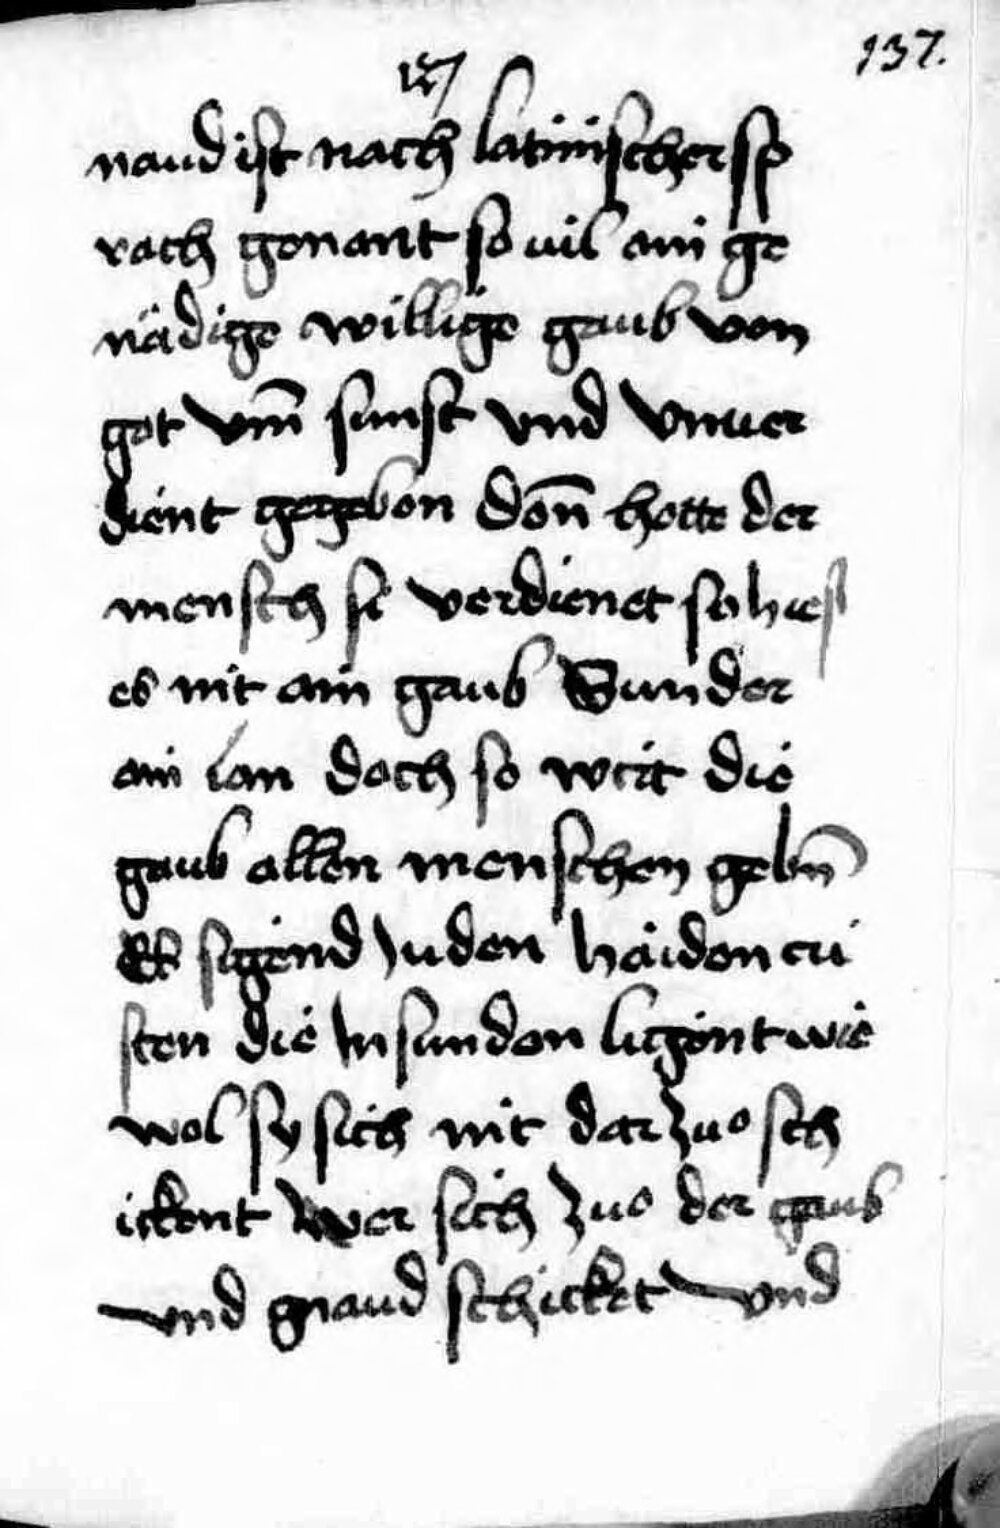 137.
127
naud ist nach latinischer sp
rach genant so uil ain ge
nädige willige gaub von
got vm̄ sunst vnd vnuer
dient gegebon don̄ hette der
mensch si verdienet so hies
es nit ain gaub Sunder
ain lon doch so weit die
gaub allen menschen gebn̄
Es sigend Juden haidon cri
sten die In sundon ligent wie
wol sy sich nit dar zuo sch
ickent wer sich zuo der gaub
vnd gnaud schicket vnd